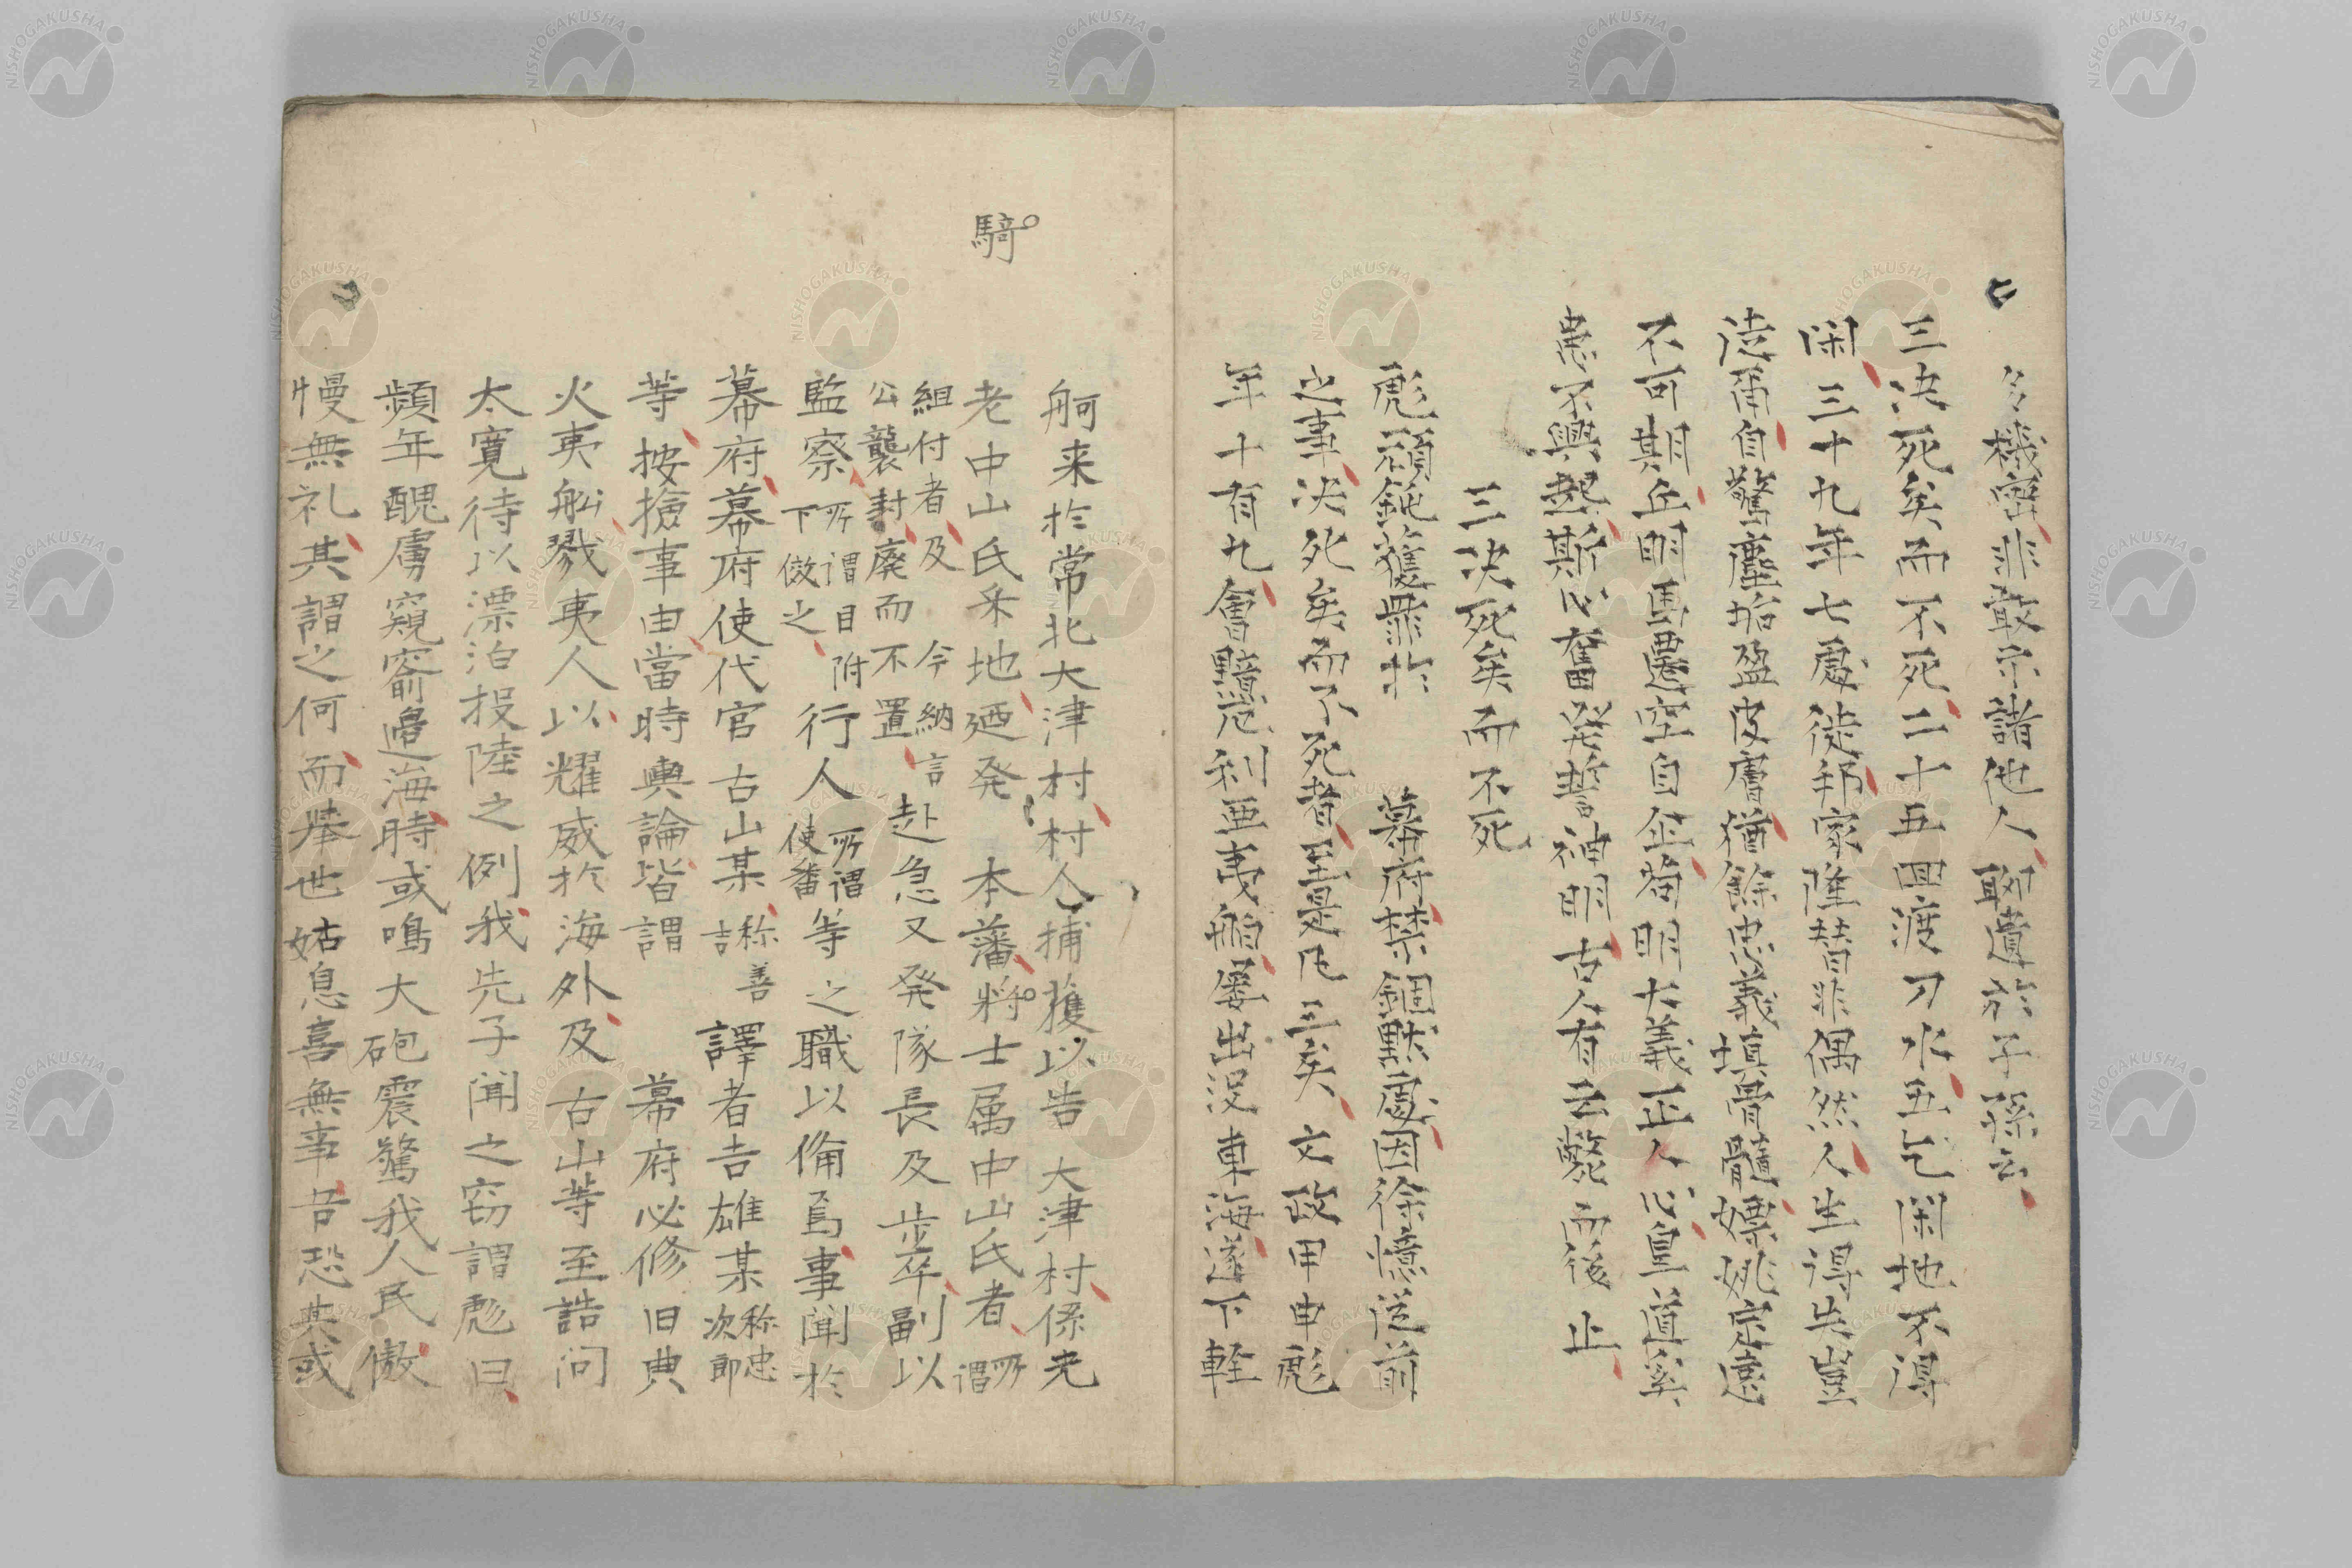 多機密非敢示諸他人聊遺於子孫云
三决死矣而不死二十五回渡刀水五乞閑地不得
閑三十九年七處徙邦家隆替非偶然人生得失豈
徒爾自驚塵垢盈皮膚猶餘忠義塡骨髓嫖姚定遠
不可期丘明馬遷空自企苟明大義正人心皇道奚
患不興起斯心奮発誓神明古人有云斃而後止
三决死矣而不死
彪頑鈍獲罪於 幕府禁錮默處因徐憶從前
之事决死矣而不死者至是凡三矣文政甲申彪
年十有九會諳厄利亜夷舶屡出没東海遂下軽
舸来於常北大津村村人捕獲以告大津村係老
老中山氏釆地廼発 本藩将士属中山氏者所謂
組付者及 今納言
公襲封廃而不置 赴急又発隊長及歩卒副以
監察所謂目附下倣之行人所謂使番等之職以偹焉事聞於
幕府幕府使代官古山某称善吉譯者吉雄某称忠次郎
等按撿事由當時輿論皆謂 幕府必修旧典
火夷船戮夷人以耀威於海外及古山等至詰问
太寛待以漂泊投陸之例我先子聞之窃謂彪曰
頻年醜虜窺窬邉海時或鳴大砲震驚我人民傲
慢無礼其謂之何而挙世姑息喜無事吾恐其或
騎
NISHOGAKUSHA